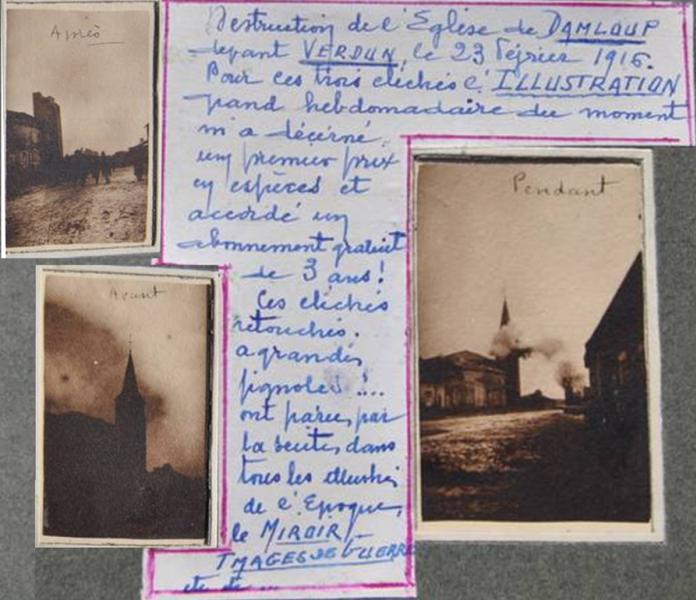 Après
Destruction de l'Église de DAMLOUP
devant VERDUN, le 23 février 1916.
Pour ces trois clichés l'ILLUSTRATION
grand hebdomadaire du moment
m'a décerné
un premier prix
en espèces et
accordé un
abonnement gratuit
de 3 ans!
Ces clichés
retouchés.
agrandis,
fignolés!...
ont parus, par
la suite, dans
tous les illustrés
de l'Epoque,
le MIROIR,
IMAGES DE GUERRE
etc etc...
Pendant
Avant